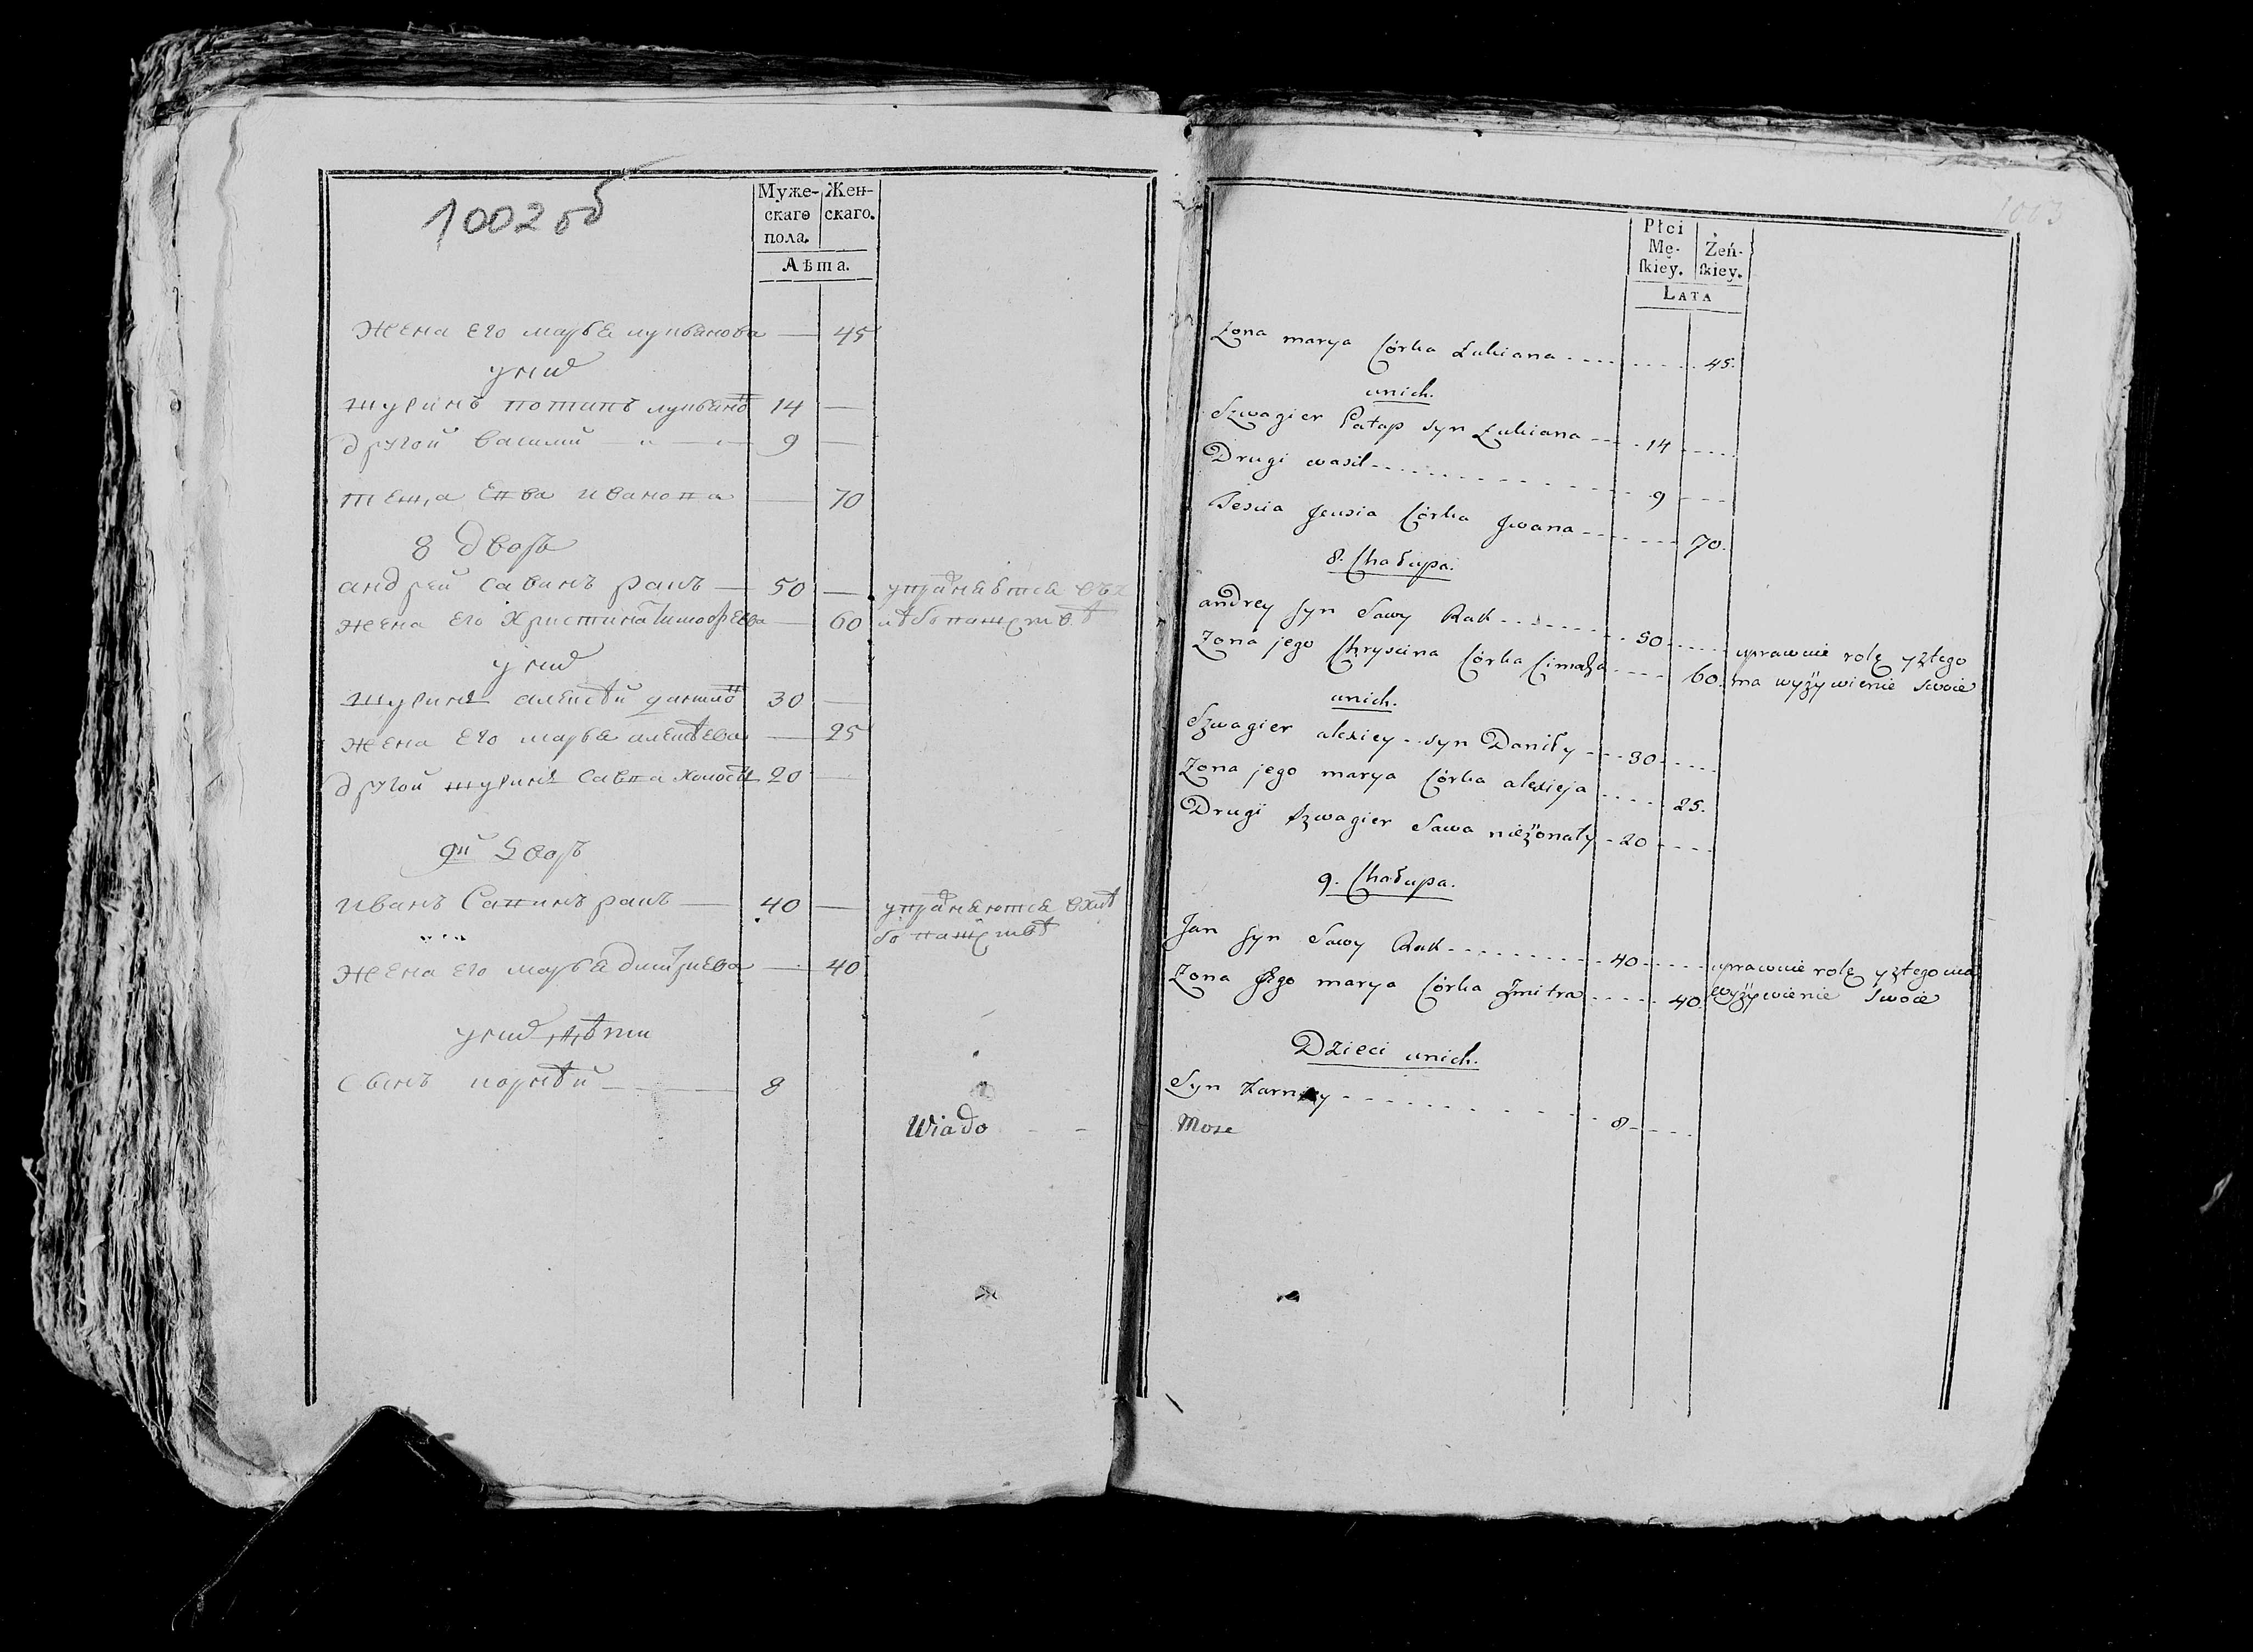 1002 об
Муже- Жен-
скаго скаго.
пола.
Лѣта.
жена его марья лукьянова — 45
у них
шурин потапъ лукьяно 14 —
другой василий — " — 9 —
теща Евва иванова — 70
8 дворъ
андрей савинъ ракъ — 50 — упражняется въ х
жена его Христина тимофеева — 60 лѣбопашествѣ
у них
шуринъ алексѣй данило 30 —
жена его марья алексѣева — 25
другой шуринъ савва холостъ 20 —
9й дворъ
иванъ Савинъ ракъ — 40 — упражняются в хлѣ
бопашествѣ
жена его марья дмитриева — 40
у них дѣти
сынъ корнѣй — 8
Wiado - -
1003
Płci
Mę- Żeń-
ſkiey. ſkiey.
LATA
Żona marya Córka Łukiana 45.
unich.
Szwagier Patap syn Łukiana 14
Drugi wasil 9
Tescia Jeusia Córka Jwana 70.
8. Chałupa.
andrey syn Sawy Rak 50 uprawuie rolę y ztego
Żona jego Chryscina Córka Cimocha 60. ma wyżywienie swoie
unich.
Szwagier alexiey syn Daniły 30
Żona jego marya Córka alexieja 25.
Drugi szwagier Sawa nieżonaty 20
9. Chałupa.
Jan syn Sawy Rak 40 uprawuie rolę y ztego ma
Żona Jego marya Córka Zmitra 40. wyżywienie swoie
Dzieci unich.
Syn Karniey 8
Mose